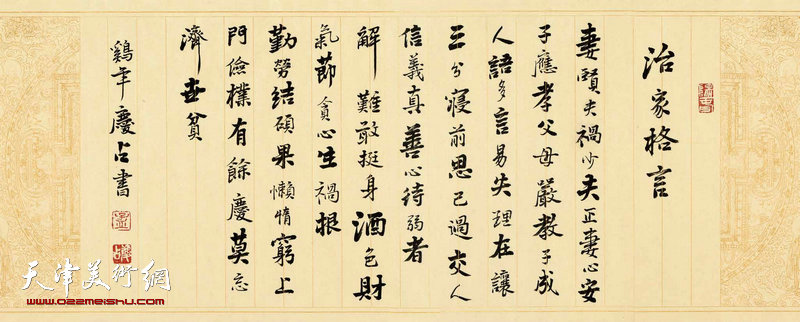 治家格言
妻賢夫禍少夫正妻心安
子應孝父母嚴教子成
人語多言易失理在讓
三分寢前思己過交人
信義真善心待弱者
解難敢挺身酒色財
氣節貪心生禍根
勤勞結碩果懶惰窮上
門儉樸有餘慶莫忘
濟世貧
鷄年慶占書
天津美術網
www.022meishu.com